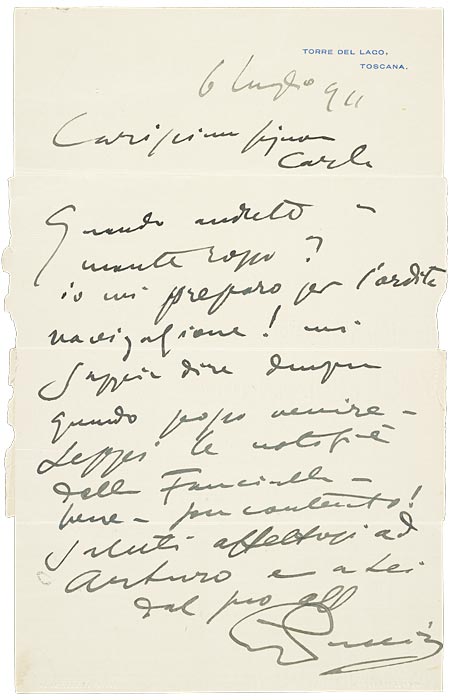 TORRE DEL LAGO,
TOSCANA.
6 luglio 911
Carissima Signora
Carla
Quando andrete a
monterosso?
io mi preparo per l'ardita
navigazione! mi
sappia dire dunque
quando posso venire -
Lessi le notizie
della Fanciulla -
bene - son contento!
Saluti affettuosi ad
Arturo e a Lei
dal suo aff
GPuccini